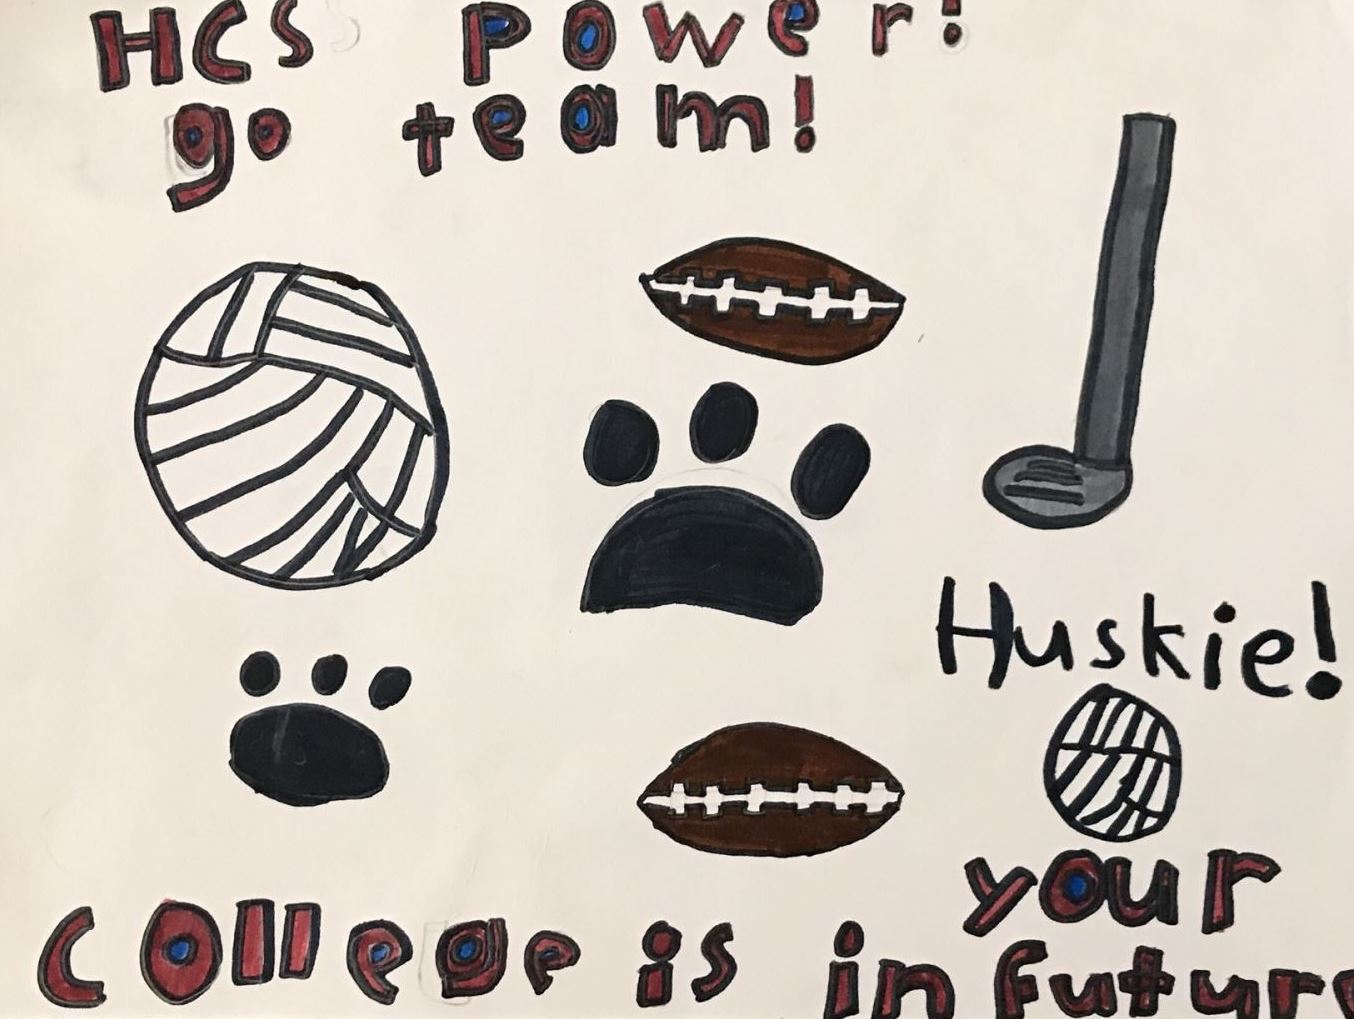 HCS power!
go team!
Huskie!
your
College is in futur